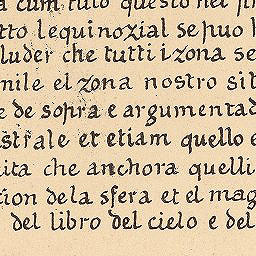 a cum tuto questo nel
tto lequinozial se puo
luder che tutti i zona se
nile el zona nostro sit
e de sopra e argumentad
strale et etiam quello e
ita che anchora quelli
tion dela sfera et el mag
del libro del cielo e del